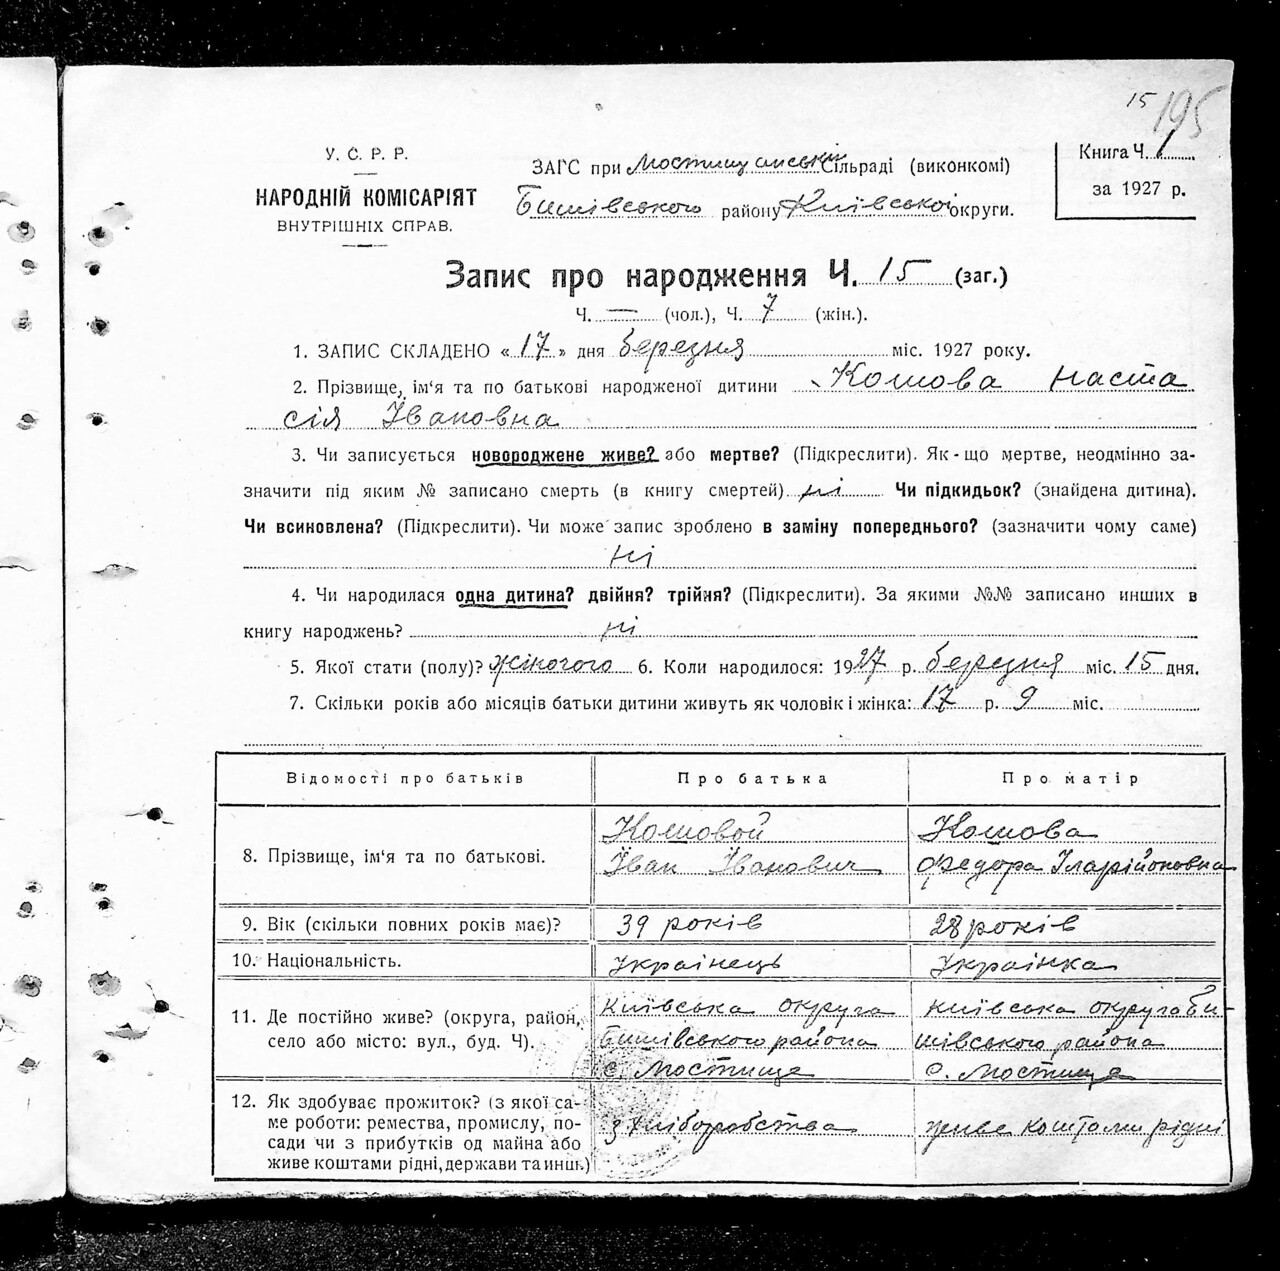 15 195
У. С. Р. Р.
НАРОДНІЙ КОМІСАРІЯТ
ВНУТРІШНІХ СПРАВ.
ЗАГС при Мостищанській Сільраді (виконкомі)
Бишівського району Київської округи.
Книга Ч. 1
за 1927 р.
Запис про народження Ч. 15 (заг.)
Ч. — (чол.), Ч. 7 (жін.).
1. ЗАПИС СКЛАДЕНО « 17 » дня березня міс. 1927 року.
2. Прізвище, ім'я та по батькові народженої дитини Кошова Наста
сія Івановна
3. Чи записується новороджене живе? або мертве? (Підкреслити). Як-що мертве, неодмінно за-
значити під яким № записано смерть (в книгу смертей) ні Чи підкидьок? (знайдена дитина).
Чи всиновлена? (Підкреслити). Чи може запис зроблено в заміну попереднього? (зазначити чому саме)
ні
4. Чи народилася одна дитина? двійня? трійня? (Підкреслити). За якими №№ записано инших в
книгу народжень? ні
5. Якої стати (полу)? жіночого 6. Коли народилося: 1927 р. березня міс. 15 дня.
7. Скільки років або місяців батьки дитини живуть як чоловік і жінка: 17 р. 9 міс.
Відомості про батьків Про батька Про матір
8. Прізвище, ім'я та по батькові.
Кошовой
Іван Іванович
Кошова
Федора Іларійоновна
9. Вік (скільки повних років має)? 39 років 28 років
10. Національність. Українець Українка
11. Де постійно живе? (округа, район,
село або місто: вул., буд. Ч).
Київська округа
Бишівського района
с. Мостище
Київська округа Би-
шівського района
с. Мостище
12. Як здобуває прожиток? (з якої са-
ме роботи: ремества, промислу, по-
сади чи з прибутків од майна або
живе коштами рідні, держави та инш.)
з хліборобства
живе коштами рідні